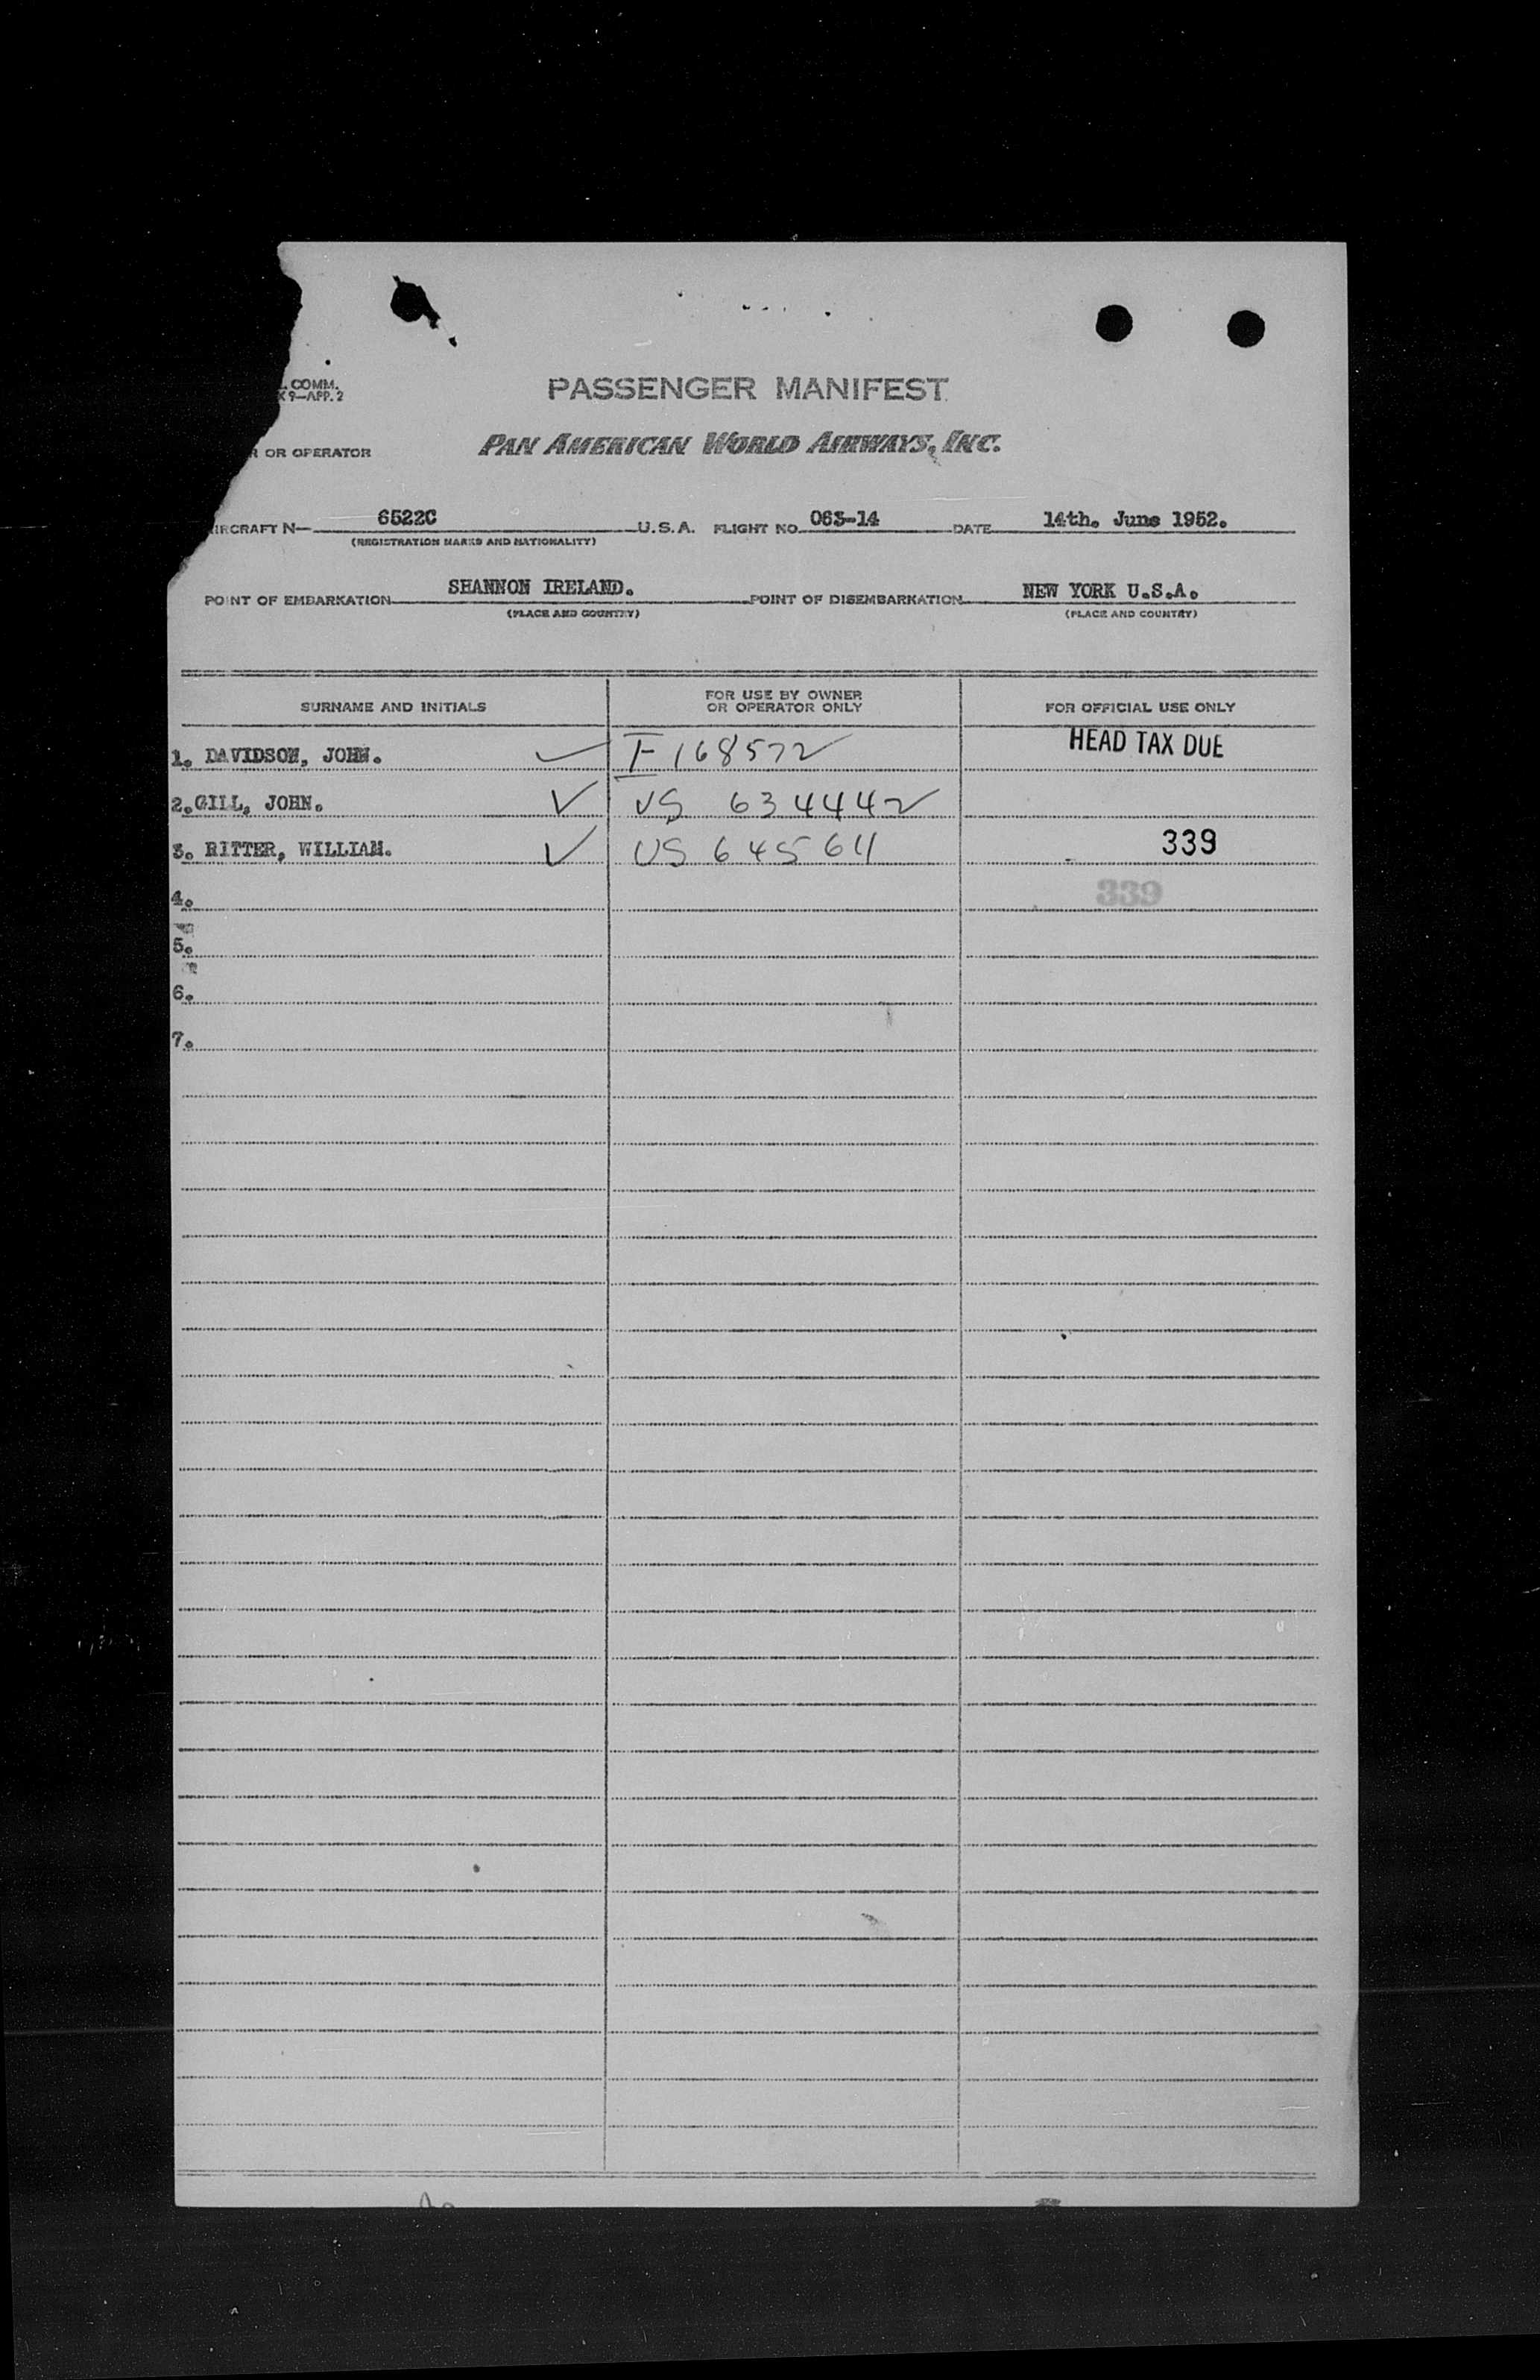 . COMM.
X 9—APP. 2
PASSENGER MANIFEST
R OR OPERATOR
PAN AMERICAN WORLD AIRWAYS, INC.
IRCRAFT N— 6522C U.S.A. FLIGHT NO. 063-14 DATE 14th. June 1952.
(REGISTRATION MARKS AND NATIONALITY)
POINT OF EMBARKATION SHANNON IRELAND. POINT OF DISEMBARKATION NEW YORK U.S.A.
(PLACE AND COUNTRY) (PLACE AND COUNTRY)
SURNAME AND INITIALS FOR USE BY OWNER OR OPERATOR ONLY FOR OFFICIAL USE ONLY
1. DAVIDSON, JOHN. ✓ I-168572 HEAD TAX DUE
2.GILL, JOHN. ✓ VS 634442
3. RITTER, WILLIAM. ✓ US 645611 339
4. 339
5.
6.
7.